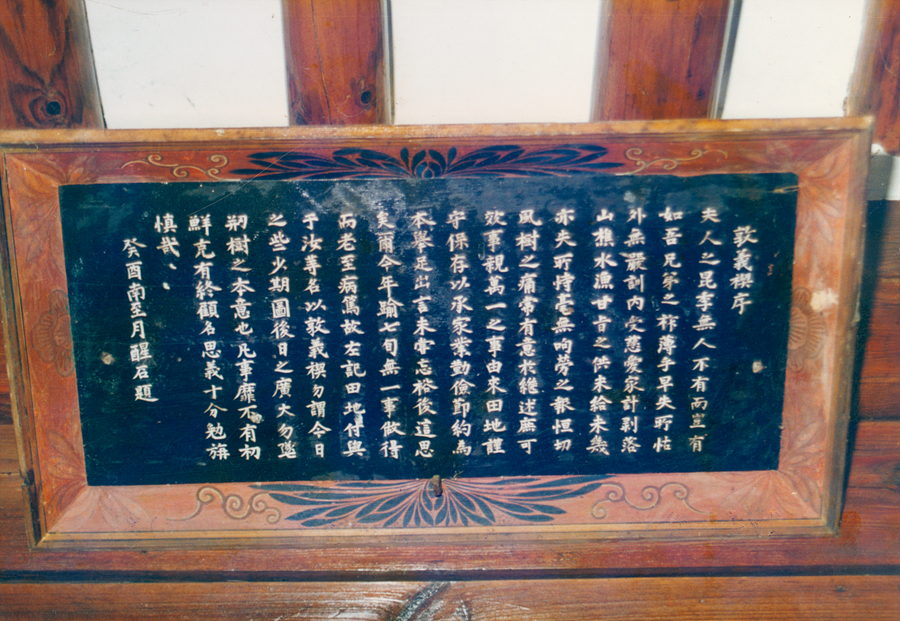 敦義禊序
夫人之昆季無人不有而豈有
如吾兄弟之祚薄乎早失所怙
外無嚴訓内受慈愛家計剥落
山樵水漁甘旨之供未給未幾
亦失所恃毫無响勞之報恒切
風樹之痛常有意於繼述庶可
效事親萬一之事由來田地謹
守保存以承家業勤儉節約為
本擧足出言未嘗忘裕後這思
矣爾今年踰七旬無一事做得
而老至病篤故左記田地付與
于汝等名以敦義禊勿謂今日
之些少期圖後日之廣大勿墜
刱樹之本意也凡事靡不有初
鮮克有終顧名思義十分勉旃
慎哉、、
癸酉南至月醒石題